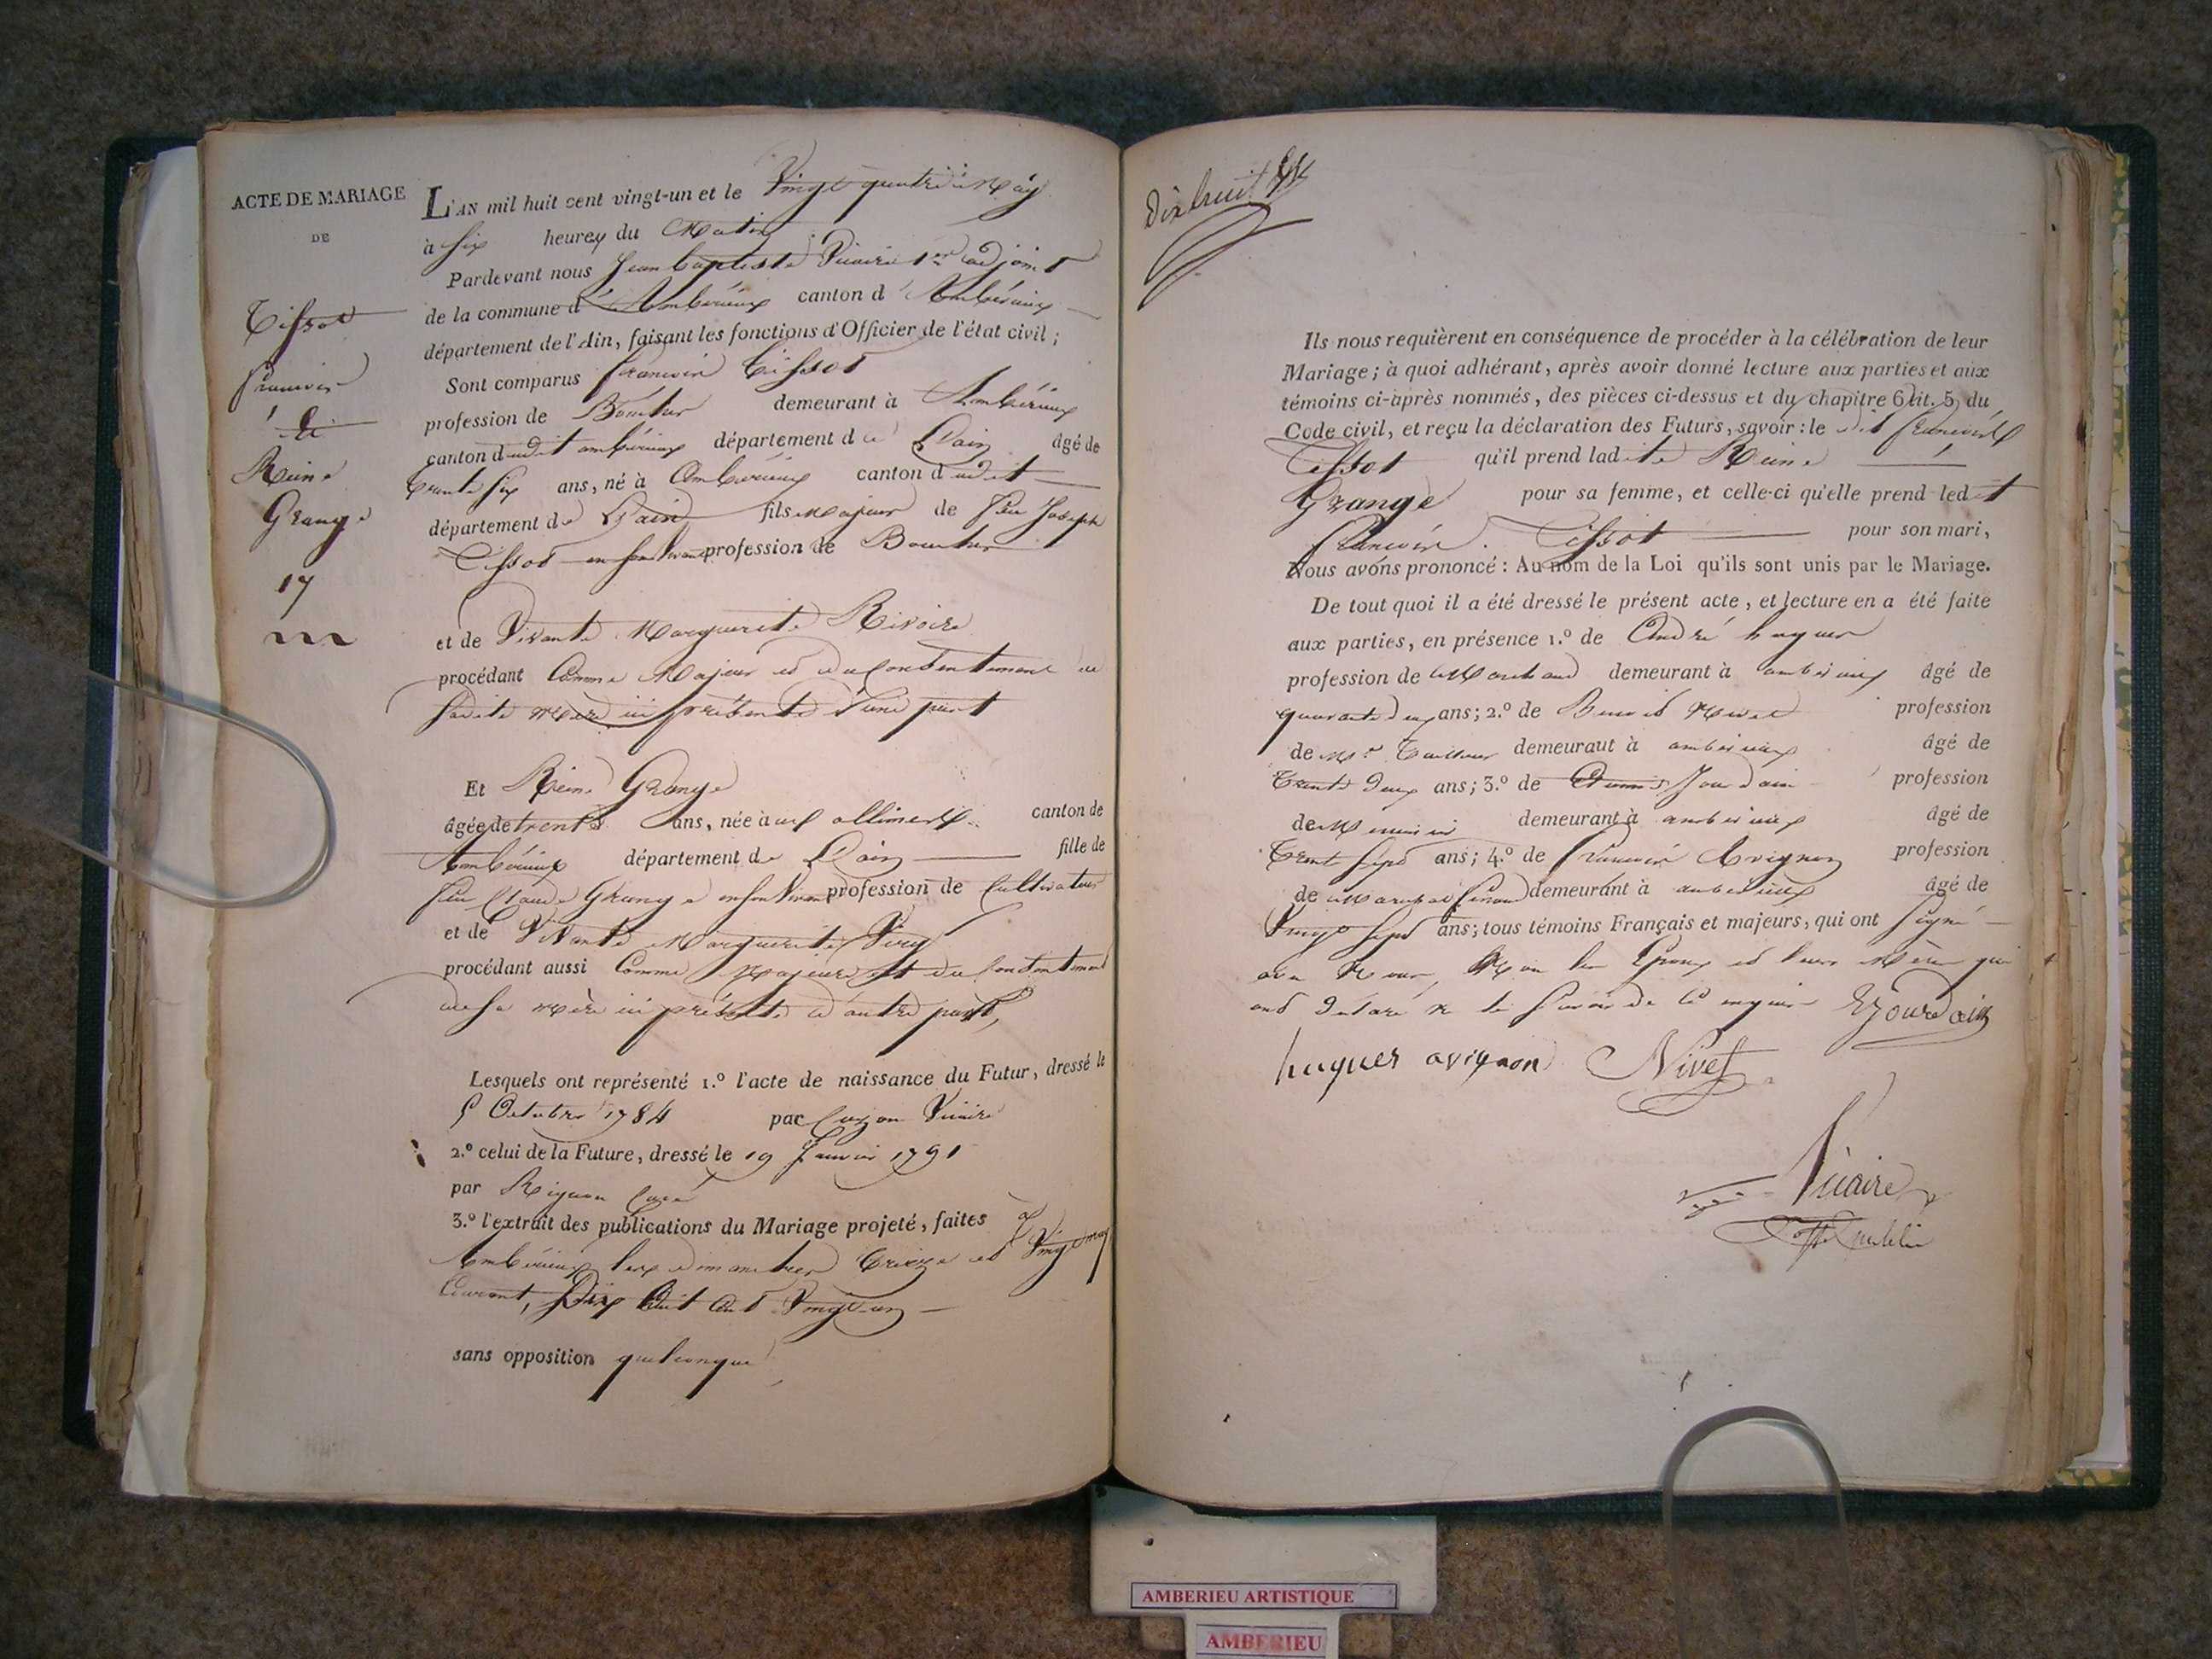 ACTE DE MARIAGE
DE
Tissot
françois
&
Reine
Grange
17
L'AN mil huit cent vingt-un et le Vingt quatre May
à six heures du Matin
Pardevant nous Jean Baptiste Vicaire 1er adjoint
de la commune d'Ambérieux canton d'Ambérieux
département de l'Ain, faisant les fonctions d'Officier de l'état civil ;
Sont comparus françois Tissot
profession de Boucher demeurant à Ambérieux
canton dudit ambérieux département de L'ain âgé de
trente six ans, né à Ambérieux canton dudit
département de L'ain fils majeur de feu Joseph
Tissot en son vivant profession de Boucher
et de Vivante Marguerite Rivoire
procédant Comme Majeur et du Consentement de
sadite mère ici présente d'une part
Et Reine Grange
âgée de trente ans, née à aux allimes canton de
Ambérieux département de L'ain fille de
feu Claude Grange en son Vivant profession de Cultivateur
et de Vivante Marguerite
procédant aussi Comme Majeure et du Consentement
de sa mère ici présente d'autre part,
Lesquels ont représenté 1.º l'acte de naissance du Futur, dressé le
5 Octobre 1784 par Vicaire
2.º celui de la Future, dressé le 19 Janvier 1791
par Curé
3.º l'extrait des publications du Mariage projeté, faites à
Ambérieux les dimanches treize et Vingt may
Courant, Dix huit cent Vingt un
sans opposition quelconque
Dix huit
Ils nous requièrent en conséquence de procéder à la célébration de leur
Mariage ; à quoi adhérant, après avoir donné lecture aux parties et aux
témoins ci-après nommés, des pièces ci-dessus et du chapitre 6 tit. 5, du
Code civil, et reçu la déclaration des Futurs, savoir : le dit françois
Tissot qu'il prend ladite Reine
Grange pour sa femme, et celle-ci qu'elle prend ledit
françois Tissot pour son mari,
Nous avons prononcé : Au nom de la Loi qu'ils sont unis par le Mariage.
De tout quoi il a été dressé le présent acte, et lecture en a été faite
aux parties, en présence 1.º de André hugues
profession de Marchand demeurant à ambérieux âgé de
quarante deux ans ; 2.º de Benoit Nivet profession
de Md Tailleur demeuraut à ambérieux âgé de
trente deux ans ; 3.º de Jourdain profession
de Menuisier demeurant à ambérieux âgé de
trente sept ans ; 4.º de françois Avignon profession
de Marechal ferrand demeurant à ambérieux âgé de
Vingt sept ans ; tous témoins Français et majeurs, qui ont signé
avec Nous, Non les Epoux et leurs Mères qui
ont déclaré ne le savoir de ce enquis Jourdain
hugues avignon Nivet
Vicaire
AMBERIEU ARTISTIQUE
AMBERIEU